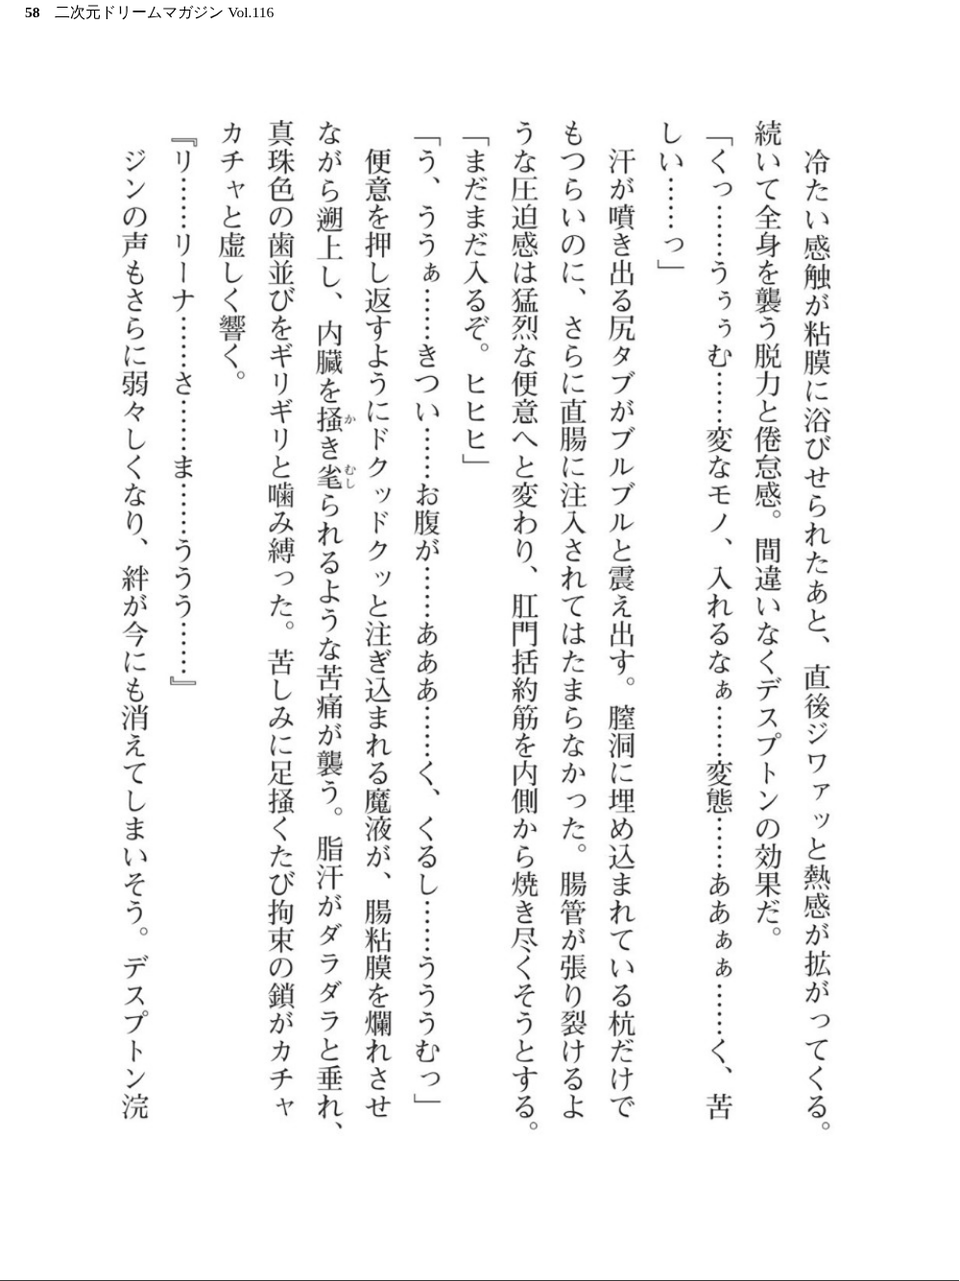 58 二次元ドリームマガジン Vol.116
冷たい感触が粘膜に浴びせられたあと、直後ジワァッと熱感が拡がってくる。
続いて全身を襲う脱力と倦怠感。間違いなくデスプトンの効果だ。
「くっ……うぅぅむ……変なモノ、入れるなぁ……変態……ああぁぁ……く、苦
しい……っ」
汗が噴き出る尻タブがブルブルと震え出す。膣洞に埋め込まれている杭だけで
もつらいのに、さらに直腸に注入されてはたまらなかった。腸管が張り裂けるよ
うな圧迫感は猛烈な便意へと変わり、肛門括約筋を内側から焼き尽くそうとする。
「まだまだ入るぞ。ヒヒヒ」
「う、ううぁ……きつい……お腹が……あああ……く、くるし……うううむっ」
便意を押し返すようにドクッドクッと注ぎ込まれる魔液が、腸粘膜を爛れさせ
ながら遡上し、内臓を掻き毟られるような苦痛が襲う。脂汗がダラダラと垂れ、
真珠色の歯並びをギリギリと噛み縛った。苦しみに足掻くたび拘束の鎖がカチャ
カチャと虚しく響く。
『リ……リーナ……さ……ま……ううう……』
ジンの声もさらに弱々しくなり、絆が今にも消えてしまいそう。デスプトン浣